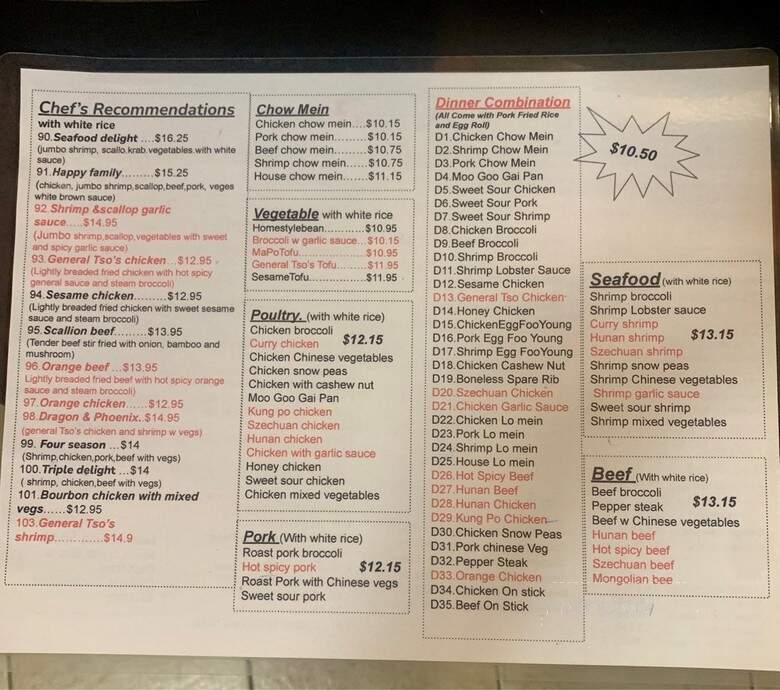 Chef's Recommendations
with white rice
90.Seafood delight ....$16.25
(jumbo shrimp, scallo,krab,vegetables with white
sauce)
91.Happy family........$15.25
(chicken, jumbo shrimp,scallop,beef,pork, veges
white brown sauce)
92.Shrimp &scallop garlic
sauce.....$14.95
(Jumbo shrimp,scallop,vegetables with sweet
and spicy garlic sauce)
93.General Tso's chicken...$12.95
(Lightly breaded fried chicken with hot spicy
general sauce and steam broccoli)
94.Sesame chicken.........$12.95
(Lightly breaded fried chicken with sweet sesame
sauce and steam broccoli)
95.Scallion beef.........$13.95
(Tender beef stir fried with onion, bamboo and
mushroom)
96.Orange beef ...$13.95
Lightly breaded fried beef with hot spicy orange
sauce and steam broccoli)
97.Orange chicken......$12.95
98.Dragon & Phoenix..$14.95
(general Tso's chicken and shrimp w vegs)
99. Four season ...$14
(Shrimp,chicken,pork,beef with vegs)
100.Triple delight ...$14
( shrimp, chicken,beef with vegs)
101.Bourbon chicken with mixed
vegs......$12.95
103.General Tso's
shrimp.............$14.9
Chow Mein
Chicken chow mein....$10.15
Pork chow mein.........$10.15
Beef chow mein.........$10.75
Shrimp chow mein......$10.75
House chow mein.......$11.15
Vegetable with white rice
Homestylebean...........$10.95
Broccoli w garlic sauce...$10.15
MaPoTofu....................$10.95
General Tso's Tofu.........$11.95
SesameTofu................$11.95
Poultry. (with white rice)
Chicken broccoli
$12.15
Curry chicken
Chicken Chinese vegetables
Chicken snow peas
Chicken with cashew nut
Moo Goo Gai Pan
Kung po chicken
Szechuan chicken
Hunan chicken
Chicken with garlic sauce
Honey chicken
Sweet sour chicken
Chicken mixed vegetables
Pork (With white rice)
Roast pork broccoli
Hot spicy pork $12.15
Roast Pork with Chinese vegs
Sweet sour pork
Dinner Combination
(All Come with Pork Fried Rice
and Egg Roll)
D1.Chicken Chow Mein
D2.Shrimp Chow Mein
D3.Pork Chow Mein
D4.Moo Goo Gai Pan
D5.Sweet Sour Chicken
D6.Sweet Sour Pork
D7.Sweet Sour Shrimp
D8.Chicken Broccoli
D9.Beef Broccoli
D10.Shrimp Broccoli
D11.Shrimp Lobster Sauce
D12.Sesame Chicken
D13.General Tso Chicken
D14.Honey Chicken
D15.ChickenEggFooYoung
D16.Pork Egg Foo Young
D17.Shrimp Egg FooYoung
D18.Chicken Cashew Nut
D19.Boneless Spare Rib
D20.Szechuan Chicken
D21.Chicken Garlic Sauce
D22.Chicken Lo mein
D23.Pork Lo mein
D24.Shrimp Lo mein
D25.House Lo mein
D26.Hot Spicy Beef
D27.Hunan Beef
D28.Hunan Chicken
D29.Kung Po Chicken
D30.Chicken Snow Peas
D31.Pork chinese Veg
D32.Pepper Steak
D33.Orange Chicken
D34.Chicken On stick
D35.Beef On Stick
$10.50
Seafood (with white rice)
Shrimp broccoli
Shrimp Lobster sauce
Curry shrimp
Hunan shrimp $13.15
Szechuan shrimp
Shrimp snow peas
Shrimp Chinese vegetables
Shrimp garlic sauce
Sweet sour shrimp
Shrimp mixed vegetables
Beef (With white rice)
Beef broccoli
Pepper steak $13.15
Beef w Chinese vegetables
Hunan beef
Hot spicy beef
Szechuan beef
Mongolian bee